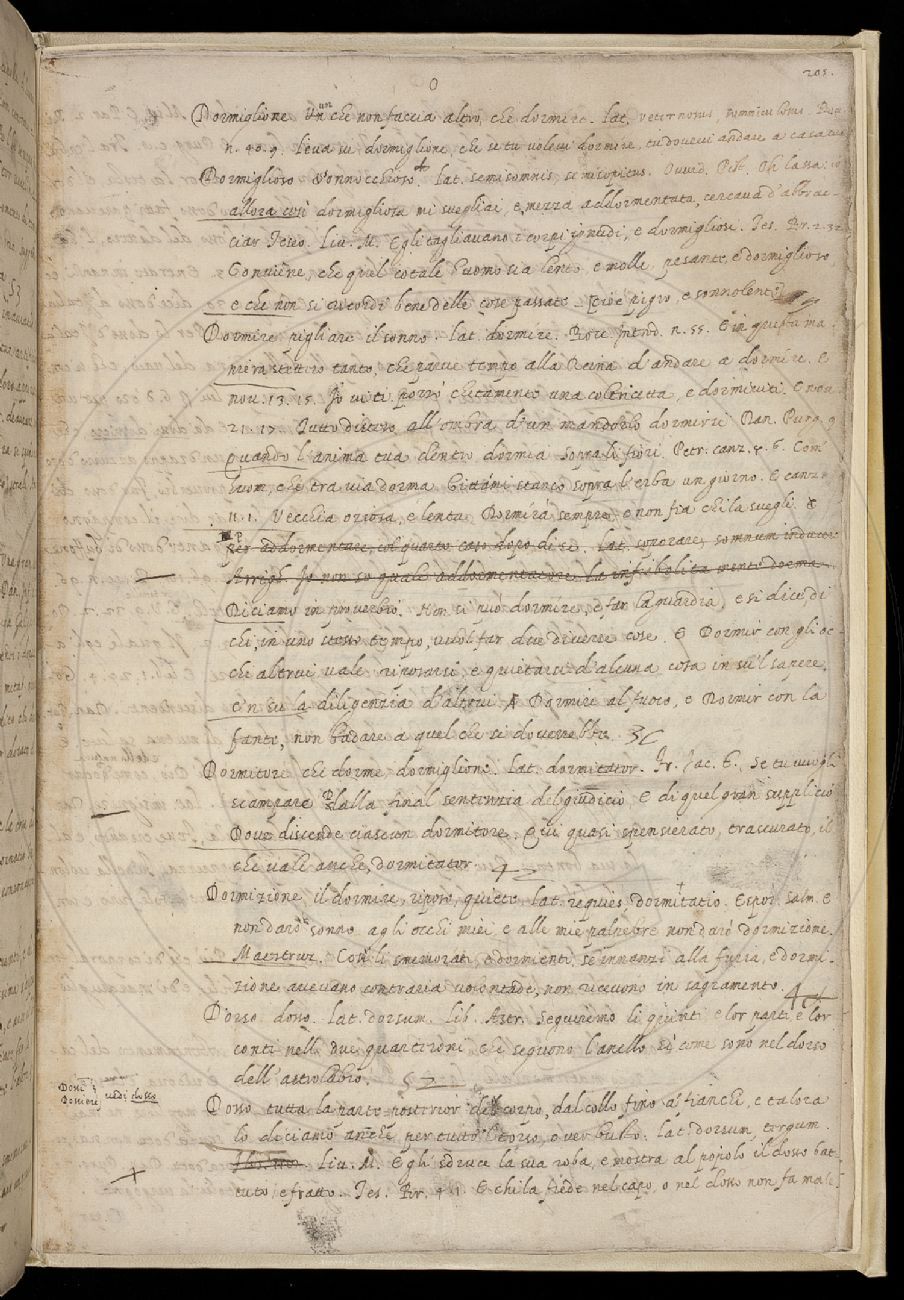 D
201.
Dormiglione. Un che non faccia altro, che dormire. Lat. veternosus, somniculosus.
n. 40. 9. Leva su dormiglione, che se tu volevi dormire, tu dovevi andare a casa tua
Dormiglioso. Sonnocchioso. Lat. semisomnis, semisopitus. Ovvid. Pist. Oh lassa: io
allora così dormigliosa mi svegliai, e mezza addormentata, cercava d'abbrac-
ciar Teseo. Liv. M. Egli tagliavano i corpi ignudi, e dormigliosi. Tes. Br. 2. 32
Conviene, che quel cotale huomo sia lento, e molle, pesante, e dormiglioso
e che non si ricordi bene delle cose passate. cioè pigro, e sonnolente
Dormire. pigliare il sonno. Lat. dormire. Bocc. Introd. n. 55. E in questa ma-
niera stettero tanto, che parve tempo alla Reina d'andare a dormire. E
nov. 13. 15. Io vi ti porrò chetamente una coltricetta, e dormiviti. E nov.
21. 17. Tutto disteso all'ombra d'un mandorlo dormirsi. Dan. Purg. 9
Quando l'anima tua dentro dormia Sopra li fiori. Petr. canz. 4. 6. Com'
huom, che tra via dorma. Gittami stanco sopra l'erba un giorno. E canz.
11. 1. Vecchia oziosa, e lenta. Dormirà sempre, e non fia chi la svegli. E
per addormentare, col quarto caso dopo di se. Lat. soporare, somnum inducere
Arrigh. Io non so quale addormentatore la infiebolita mente dorma.
Diciamo in proverbio. Non si può dormire, e far la guardia, e si dice di
chi, in uno stesso tempo, vuol far due diverse cose. E Dormir con gli oc-
chi altrui vale riposarsi, e quietarsi d'alcuna cosa in su'l sapere,
e'n su la diligenzia d'altrui. E Dormire al fuoco, e Dormir con la
fante, non badare a quel che si doverrebbe.
Dormitore. che dorme, dormiglione. Lat. dormitator. Fr. Iac. T. Se tu vuogli
scampare dalla final sentenzia del giudicio, E di quel gran supplicio
Dove discende ciascun dormitore. Qui quasi spensierato, trascurato, il
che vale anche, dormitator.
Dormizione. il dormire, riposo, quiete. Lat. requies, dormitatio. Espos. Salm. E
non darò sonno agli occhi miei, e alle mie palpebre non darò dormizione.
Maestruz. Così li smemorati, e dormienti, se innanzi alla furia, e dormi-
zione avevano contraria volontade, non ricevono in sagramento.
Dorso. dosso. Lat. dorsum. Lib. Astr. Seguiremo li quinti e lor parti, e lor
conti nelli due quartironi che seguono l'anello si come sono nel dorso
dell'astrolabio.
Dossi e
Dossiere
vedi dosso
Dosso. tutta la parte posterior del corpo, dal collo fino a' fianchi, e talora
lo diciamo anche per tutto 'l torso, o ver busto. Lat. dorsum, tergum.
Liv. M. Egli sdruce la sua roba, e mostra al popolo il dosso bat-
tuto, e fratto. Tes. Br. 4. 1. E chi la fiede nel capo, o nel dosso non fa male